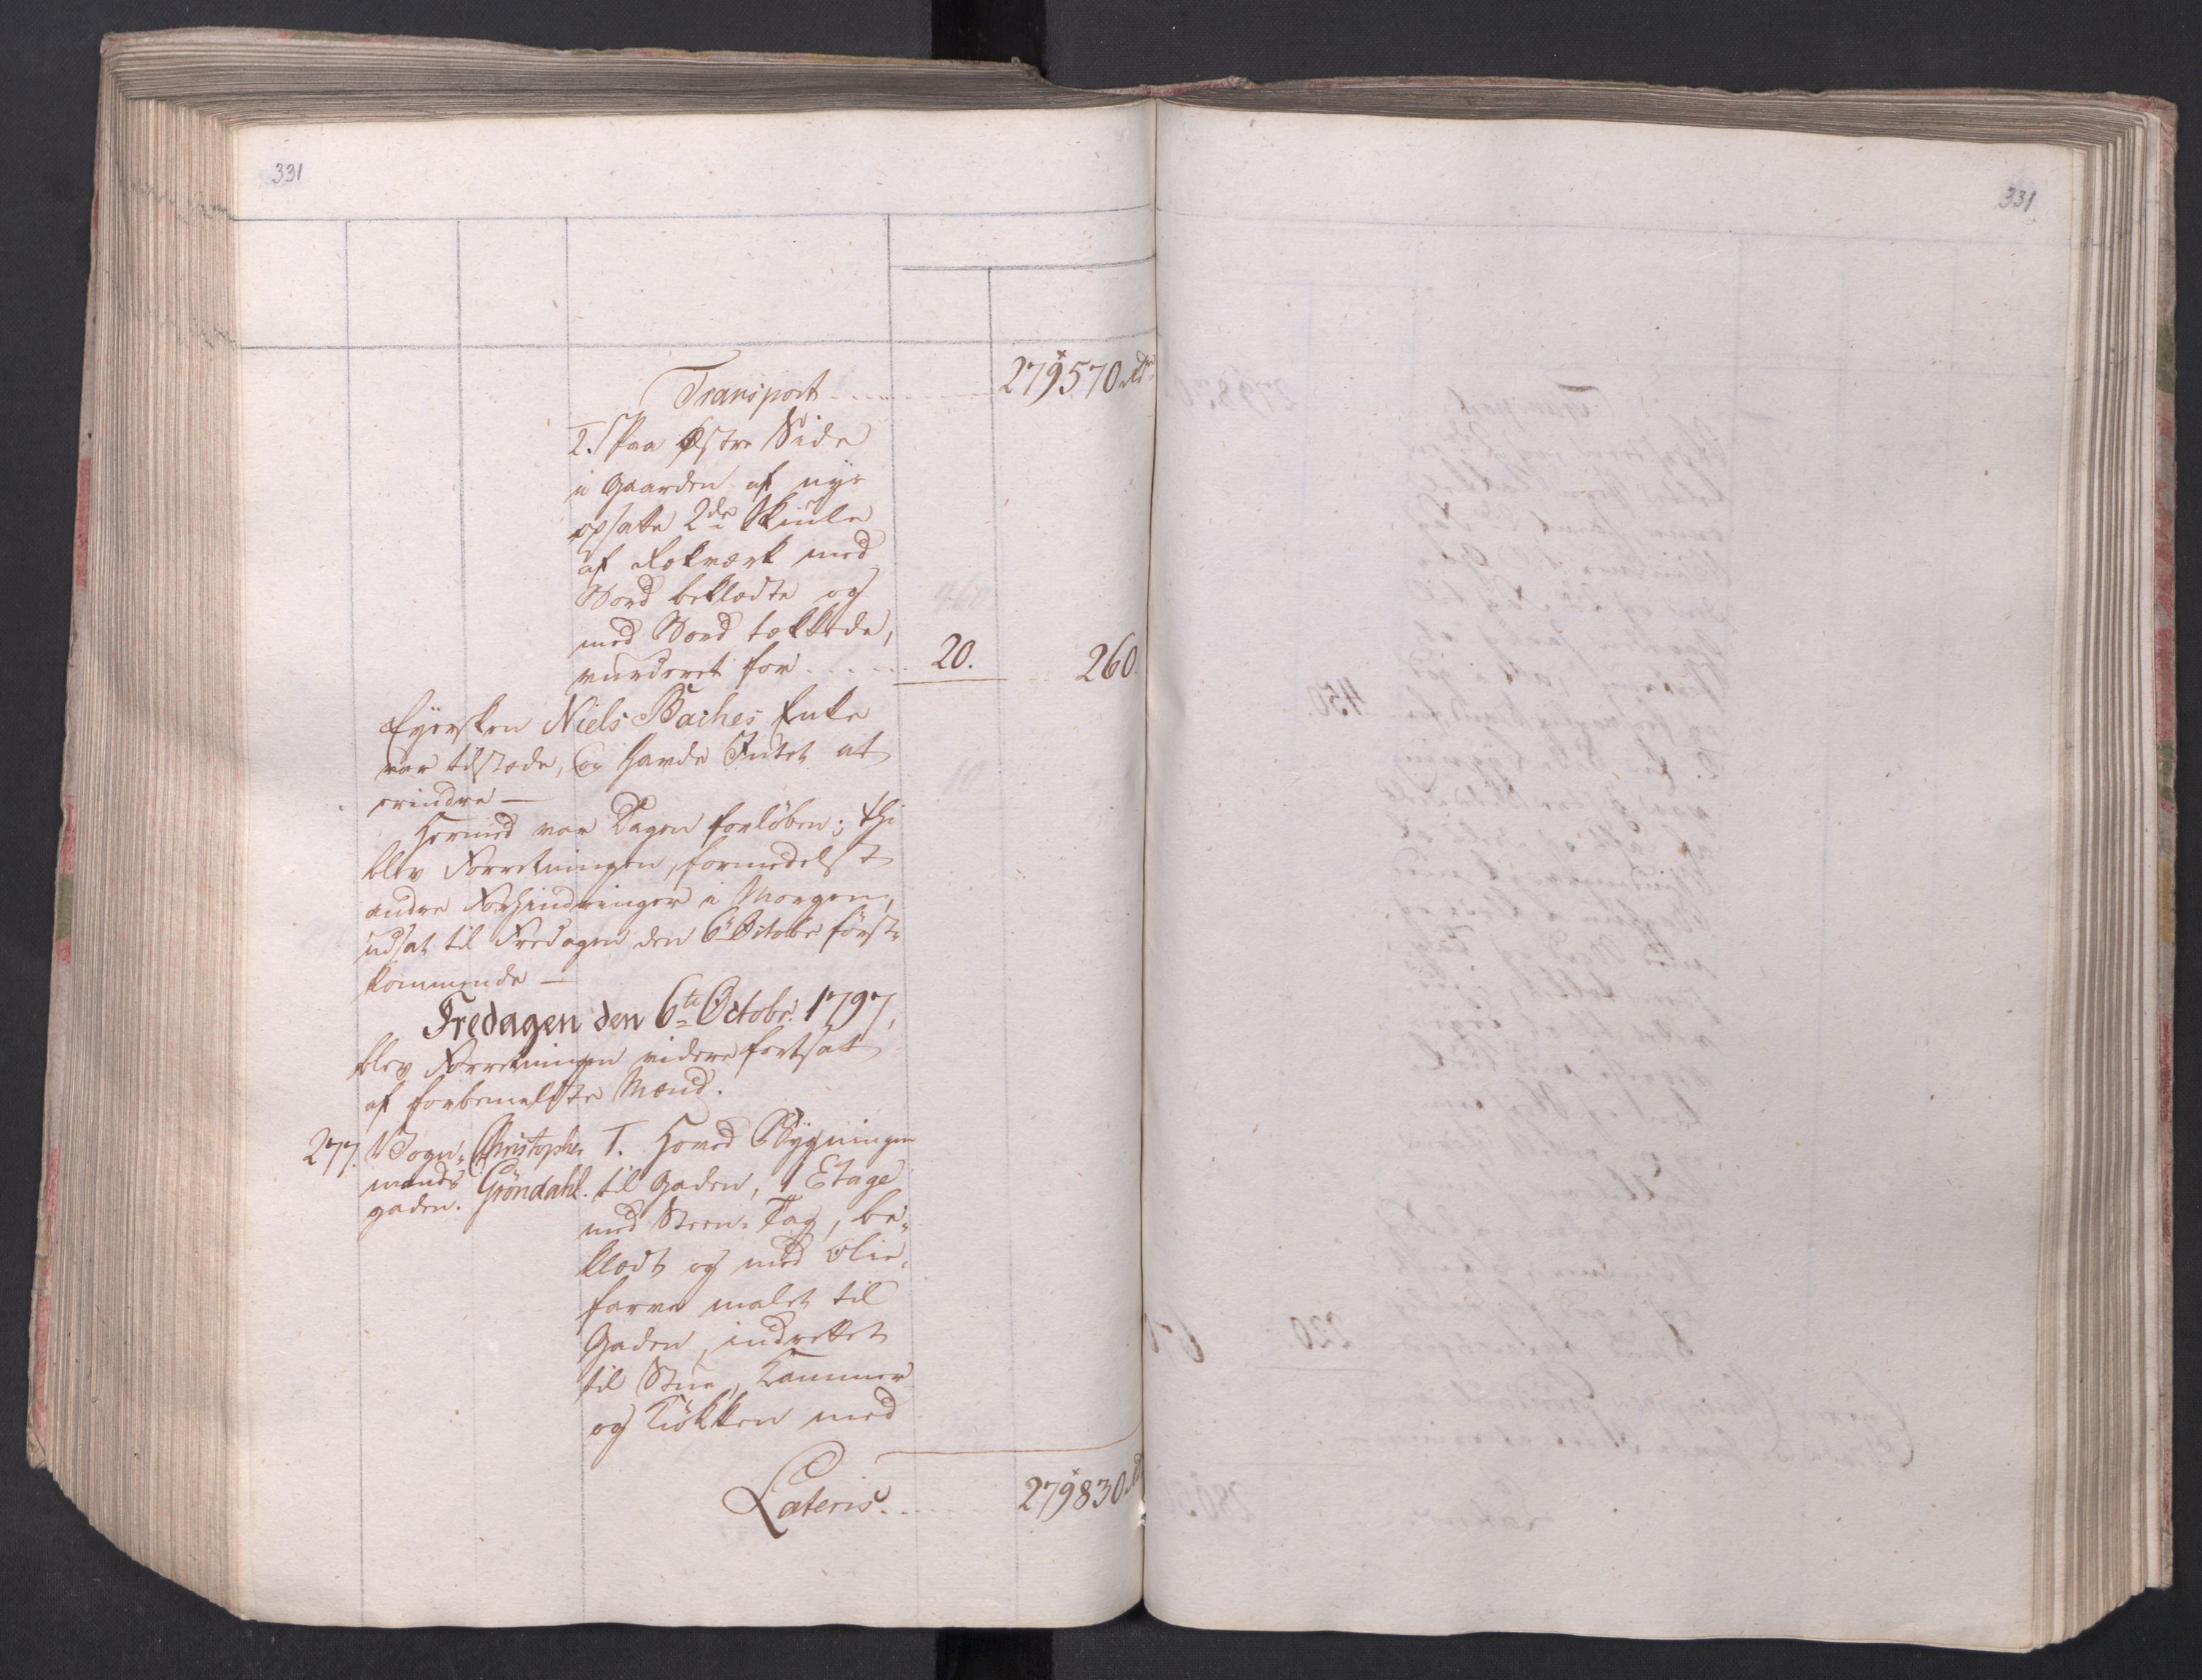 331
331
Transport 279570 Rdr
2. Paa Østre Side
i Gaarden af nye
opsatte 2de Skiule
af Rekverk med
Bord beklædte og
med Bord tækkede,
vurderet for 20. 260.
Eyersken Niels Baches Enke
var tilstæde, og havde Intet at
erindre —
Hermed var Dagen forløben; thi
blev Forretningen, formedelst
andre Forhindringer i Morgen,
udsat til Fredagen den 6te Octobr først-
kommende —
Fredagen den 6te Octobr. 1797,
blev Forretningen videre fortsat
af forbemeldte Mænd.
277. Vogn- Christopher 1. Hoved Bygningen
mands Gröndahl. til Gaden, 1 Etage
gaden. med Steen-Tag, be-
klædt og med Olie-
farve malet til
Gaden, indrettet
til Stue, Kammer
og Kiøkken med
Lateris. 279830 Rd